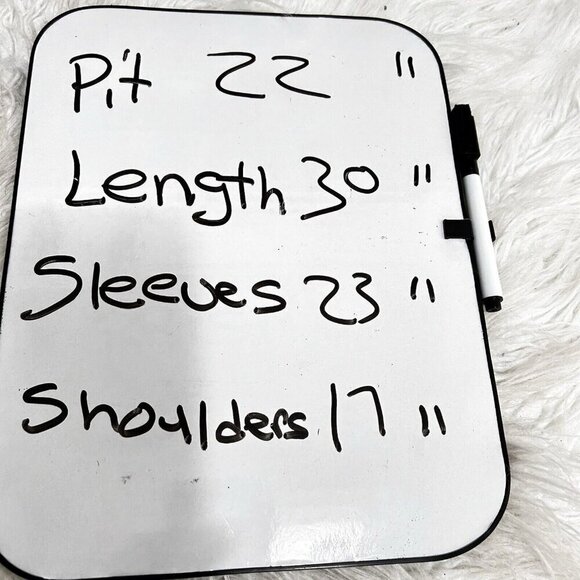 Pit 22 "
Length 30 "
Sleeves 23 "
Shoulders 17 "